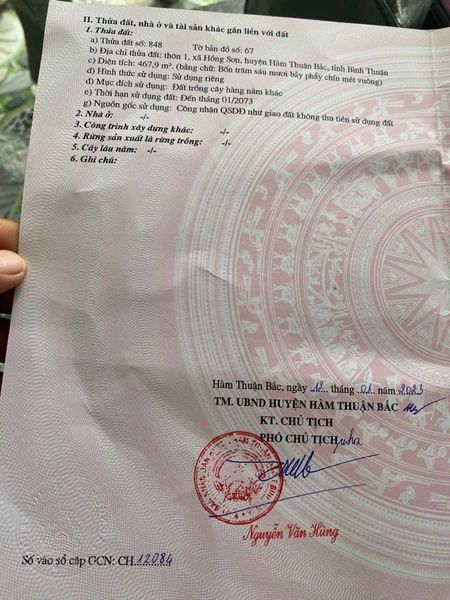 II. Thửa đất, nhà ở và tài sản khác gắn liền với đất
1. Thửa đất:
a) Thửa đất số: 848 Tờ bản đồ số: 67
b) Địa chỉ thửa đất: thôn 1, xã Hồng Sơn, huyện Hàm Thuận Bắc, tỉnh Bình Thuận
c) Diện tích: 467,9 m². (bằng chữ: Bốn trăm sáu mươi bảy phẩy chín mét vuông)
d) Hình thức sử dụng: Sử dụng riêng
đ) Mục đích sử dụng: Đất trồng cây hàng năm khác
e) Thời hạn sử dụng đất: Đến tháng 01/2073
g) Nguồn gốc sử dụng: Công nhận QSDĐ như giao đất không thu tiền sử dụng đất
2. Nhà ở: -/-
3. Công trình xây dựng khác: -/-
4. Rừng sản xuất là rừng trồng: -/-
5. Cây lâu năm: -/-
6. Ghi chú:
Hàm Thuận Bắc, ngày 12 tháng 01 năm 2023
TM. UBND HUYỆN HÀM THUẬN BẮC
KT. CHỦ TỊCH
PHÓ CHỦ TỊCH
Nguyễn Văn Hùng
Số vào sổ cấp GCN: CH 12084